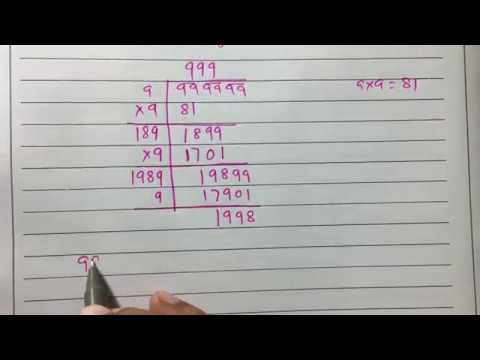 999
9 999999 9x9 = 81
x9 81
189 1899
x9 1701
1989 19899
9 17901
1998
99